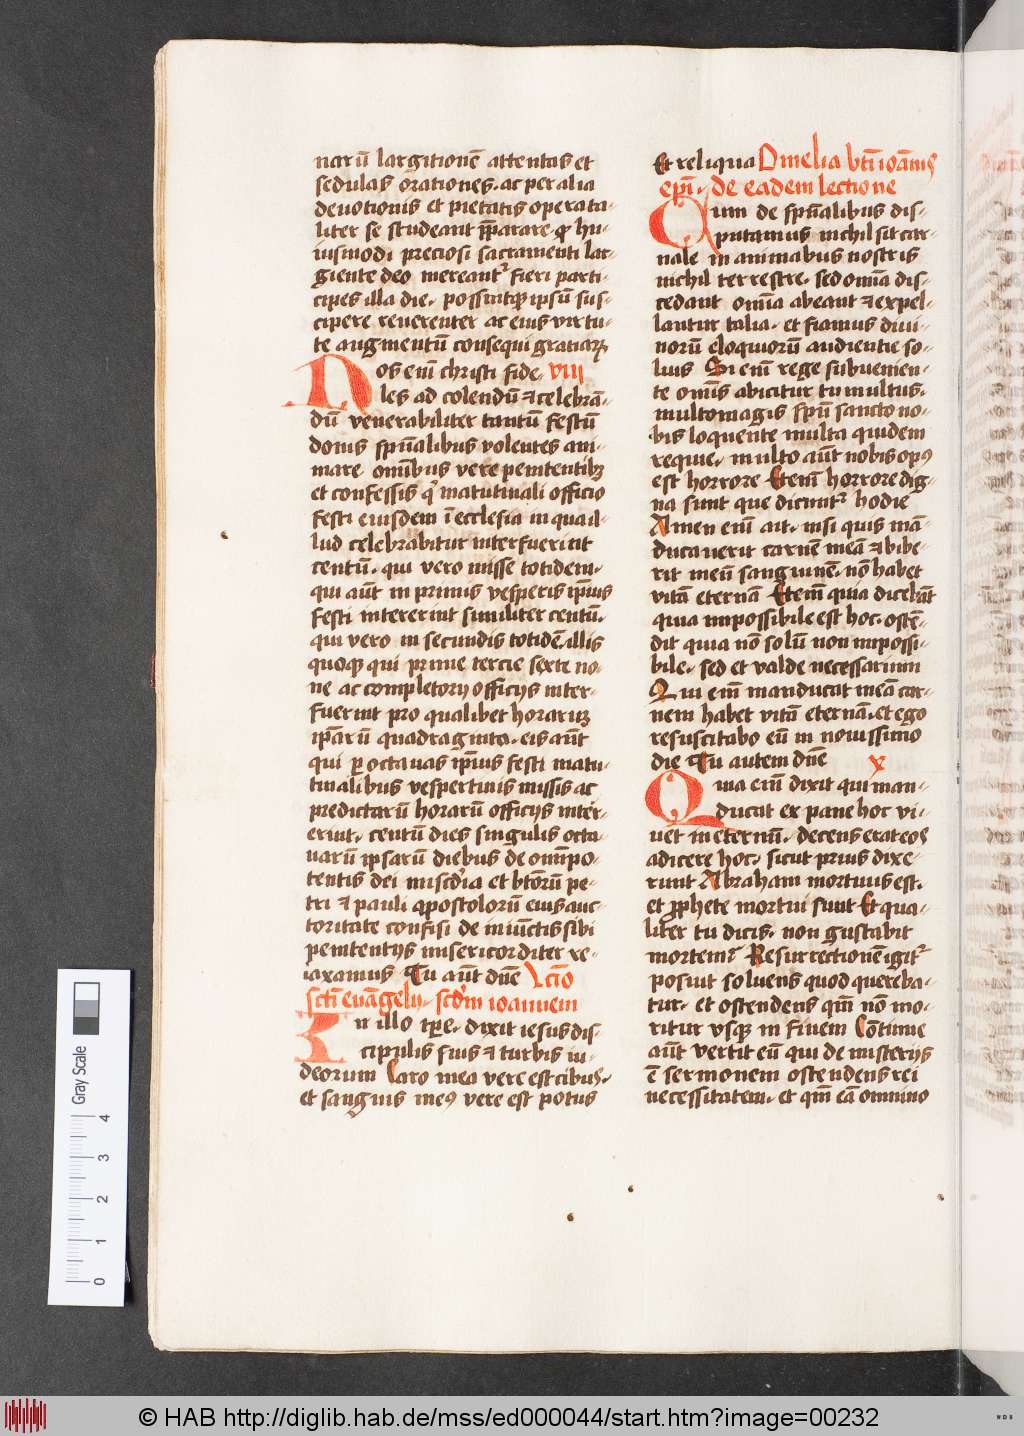 narū largitionē attentas et
sedulas orationes. ac per alia
deuotionis et pietatis opera ta-
liter se studeant p̄parare. ꝙ hu-
iusmodi preciosi sacramenti lar-
giente deo mereant᷑ fieri parti-
cipes illa die. possintqꝫ ipsū sus-
cipere reuerenter ac eius virtu-
te augmentū consequi gratiaꝝ.
Nos em̄ christi fide viii
les ad colendū ⁊ celebrā-
dū venerabiliter tantū festū
donis sp̄ūalibus volentes ani-
mare om̄ibus vere penitentibꝫ
et confessis q' matutinali officio
festi eiusdem ī ecclesia in qua il-
lud celebrabitur interfuerint
centū. qui vero misse totidem.
qui aūt in primis vesperis ip̄ius
festi intererint similiter centū.
qui vero in secundis totidē. illis
quoqꝫ qui prime tercie sexte no-
ne ac completorij officijs inter-
fuerint pro qualibet horarum
ip̄arū quadraginta. eis aūt
qui ꝑ octauas ip̄ius festi matu-
tinalibus vespertinis missis ac
predictarū horarū officijs inter-
erint. centū dies singulis octa-
uarū ipsarū diebus de om̄ipo-
tentis dei mis̄c̄dia et btōrū pe-
tri ⁊ pauli apostolorū eius auc-
toritate confisi de iniūctis sibi
penitentijs misericorditer re-
laxamus Tu aūt dn̄e Lc̄io
sc̄ti euāgelij. sc̄dm ioannem
In illo tꝑe. dixit iesus dis-
cipulis suis ⁊ turbis iu-
deorum Caro mea vere est cibus.
et sanguis me⁹ vere est potus
Et reliqua Omelia bt̄i ioānis
ep̄i. de eadem lectione
Qum de sp̄ūalibus dis-
putamus nichil sit car-
nale in animabus nostris
nichil terrestre. sed om̄ia dis-
cedant om̄ia abeant ⁊ expel-
lantur talia. et fiamus diui-
norū eloquiorū audientie so-
lius Si em̄ rege subuenien-
te om̄is abicitur tumultus.
multomagis sp̄ū sancto no-
bis loquente multa quidem
requie. multo aūt nobis op⁹
est horrore Etem̄ horrore dig-
na sunt que dicunt᷑ hodie
Amen em̄ ait. nisi quis mā-
ducauerit carnē meā ⁊ bibe-
rit meū sanguinē. nō habet
vitā eternā Etem̄ quia dicebāt
quia impossibile est hoc. ostē-
dit quia nō solū non impossi-
bile. sed et valde necessarium
Qui em̄ manducat meā car-
nem habet vitā eternā. et ego
resuscitabo eū in nouissimo
die Tu autem dn̄e x
Quia em̄ dixit qui man-
ducat ex pane hoc vi-
uet in eternū. decens erat eos
adicere hoc. sicut prius dixe-
runt Abraham mortuus est.
et ꝓphete mortui sunt Et qua-
liter tu dicis. non gustabit
mortem? Resurrectionē igit᷑
posuit soluens quod quereba-
tur. et ostendens qm̄ nō mo-
ritur vsqꝫ in finem Cōtinue
aūt vertit eū qui de misterijs
ē sermonem ostendens rei
necessitatem. et qm̄ eā omnino
Gray Scale
4
3
2
1
0
© HAB http://diglib.hab.de/mss/ed000044/start.htm?image=00232